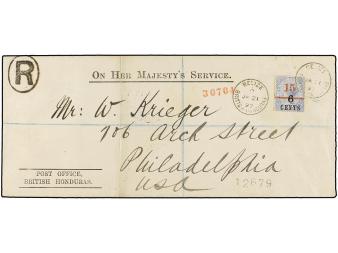 R
ON HER MAJESTY'S SERVICE.
30704
BELIZE
15
6
CENTS
Mr. W. Krieger
106 Arch Street
Philadelphia
USA
12679
POST OFFICE,
BRITISH HONDURAS.